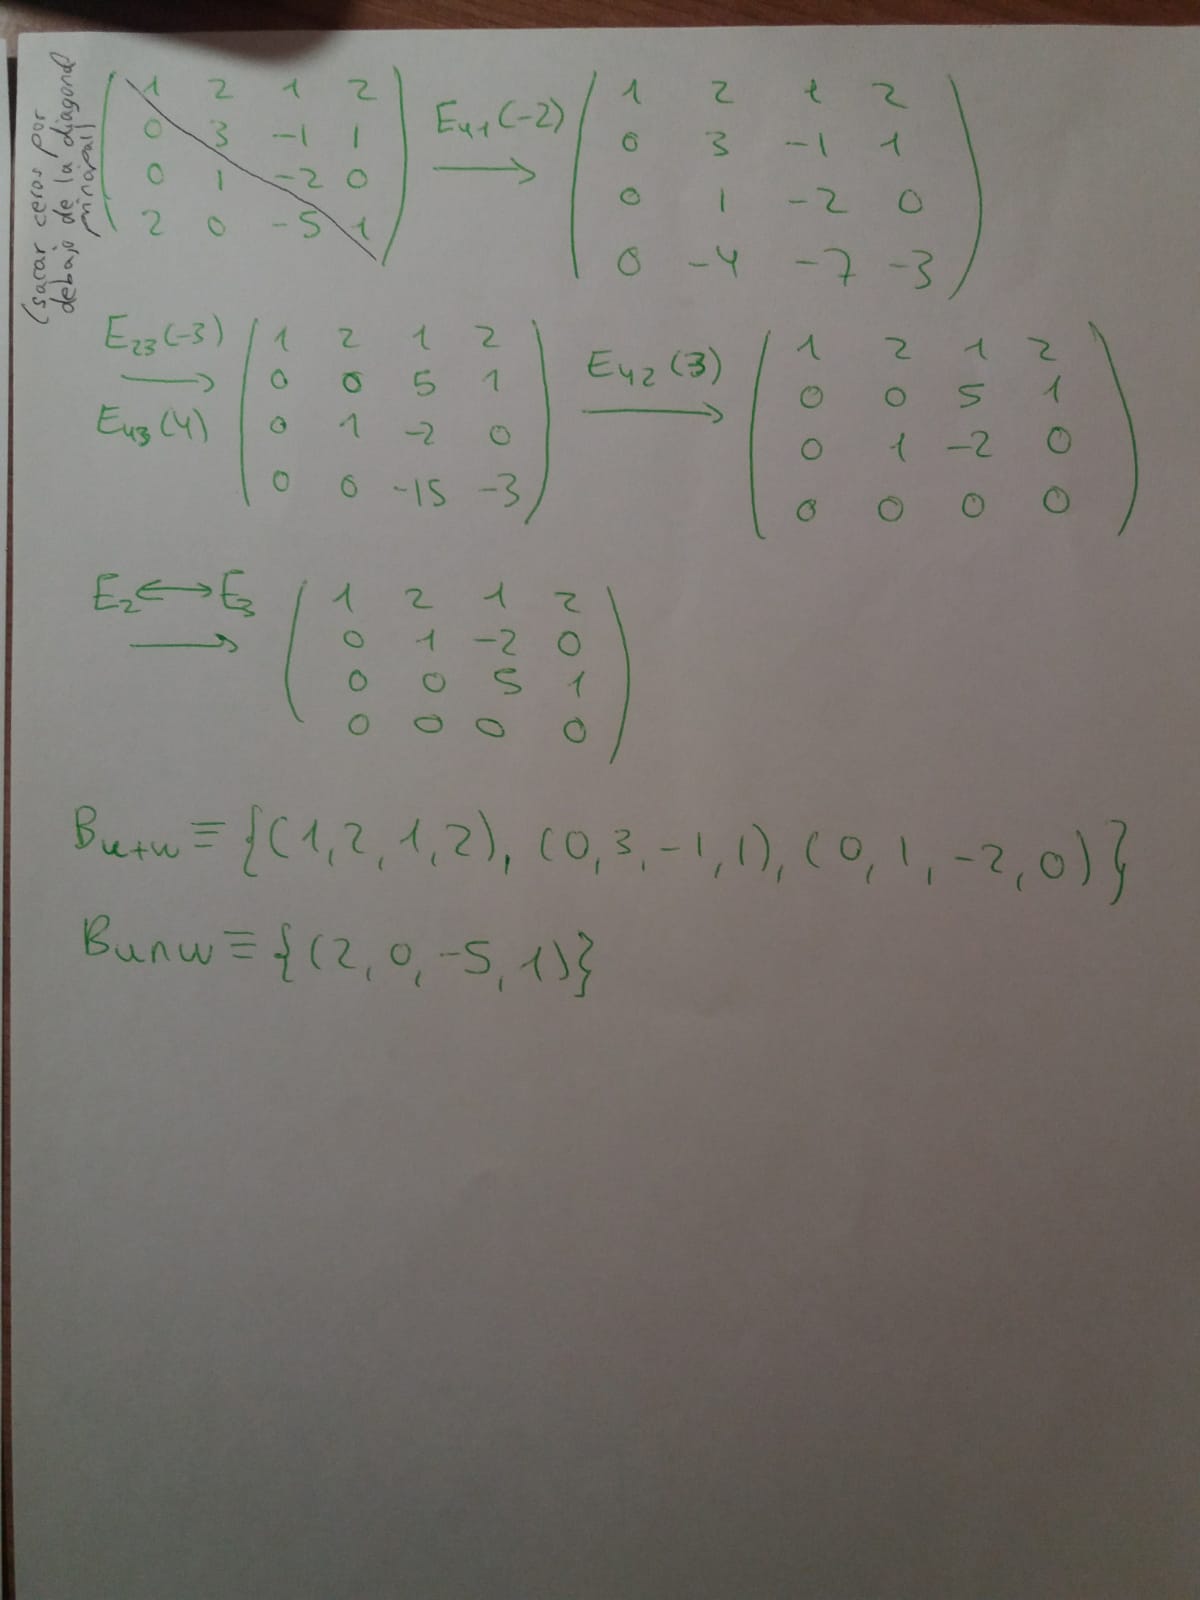 (sacar ceros por
debajo de la diagonal
principal)
1 2 1 2
0 3 -1 1
0 1 -2 0
2 0 -5 1
E41(-2)
1 2 1 2
0 3 -1 1
0 1 -2 0
0 -4 -7 -3
E23(-3)
E43(4)
1 2 1 2
0 0 5 1
0 1 -2 0
0 0 -15 -3
E42(3)
1 2 1 2
0 0 5 1
0 1 -2 0
0 0 0 0
E2↔E3
1 2 1 2
0 1 -2 0
0 0 5 1
0 0 0 0
Bu+w≡{(1,2,1,2),(0,3,-1,1),(0,1,-2,0)}
Bu∩w≡{(2,0,-5,1)}